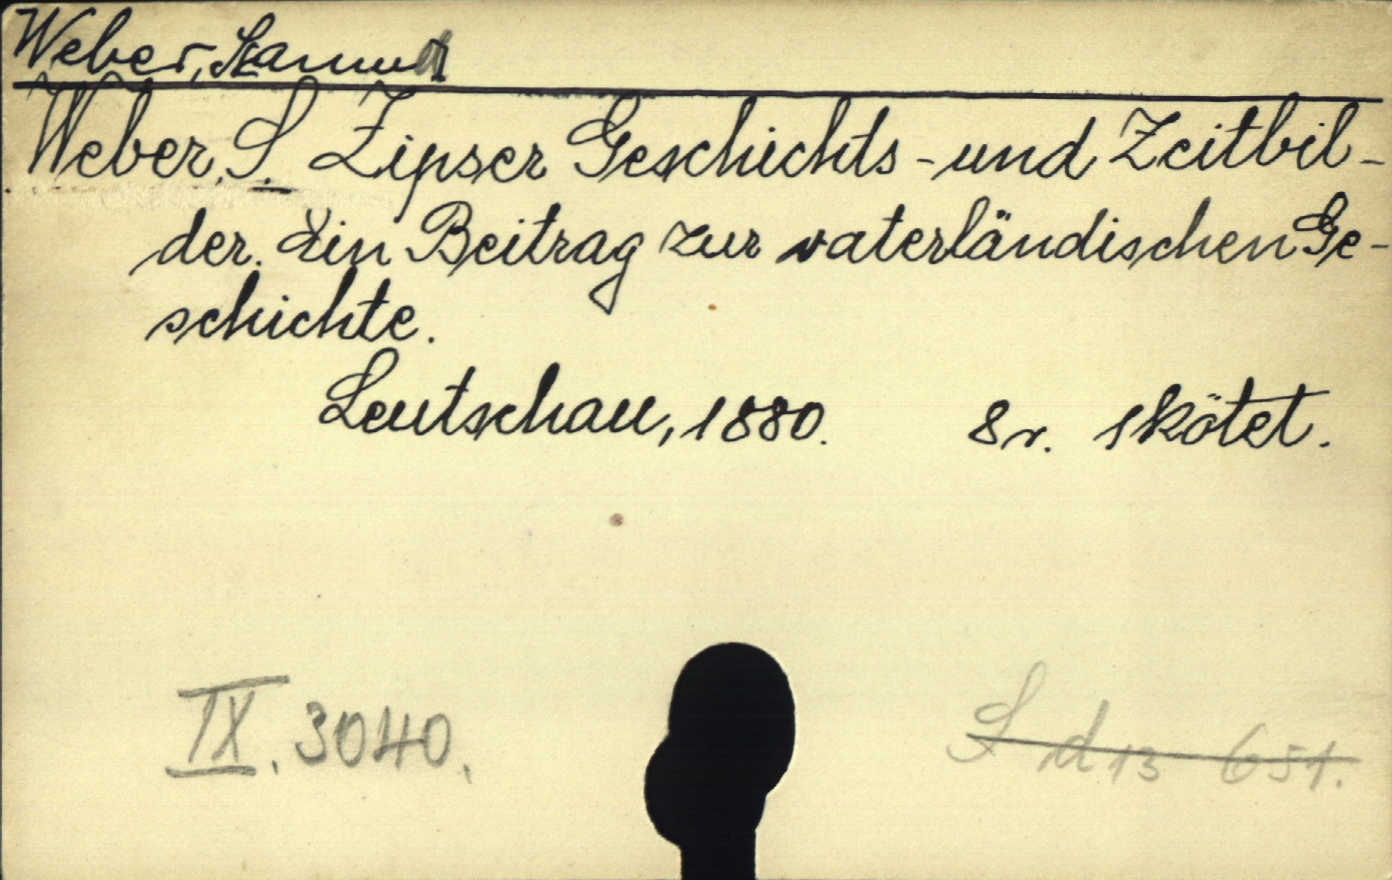 Weber, Samuel
Weber, S. Zipser Geschichts-und Zeitbil-
der. Ein Beitrag zur vaterländischen Ge-
schichte.
Leutschau, 1880. 8r. 1 kötet.
IX. 3040.
S d 13 651.